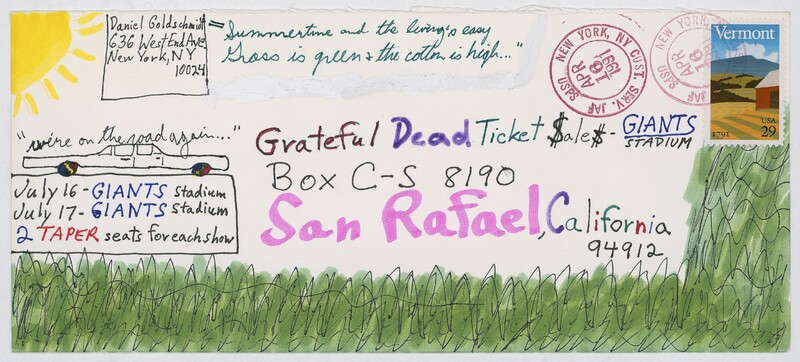 Daniel Goldschmidt
636 West End Ave
New York, NY
10024
"Summertime and the living's easy
Grass is green & the cotton is high..."
NEW YORK, NY CUST. SERV. JAF USPS
APR
16
1991
NEW YORK, NY CUST. SERV. JAF USPS
APR
16
1991
Vermont
1791
USA
29
"we're on the road again..."
July 16 - GIANTS Stadium
July 17 - GIANTS Stadium
2 TAPER seats for each show
Grateful Dead Ticket $ale$ - GIANTS
STADIUM
Box C-S 8190
San Rafael, California
94912